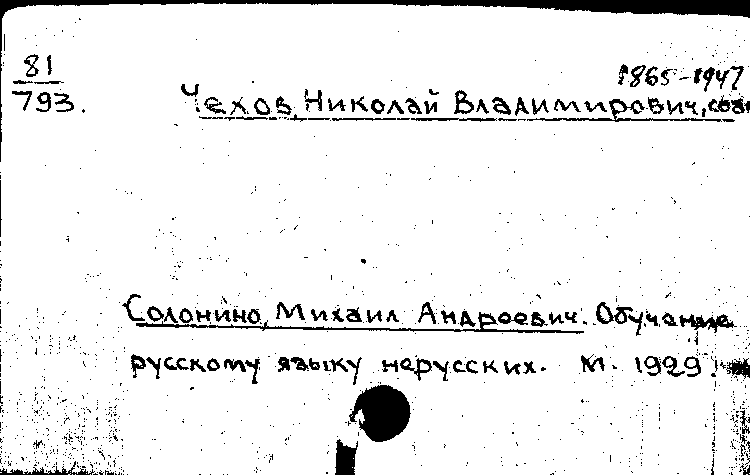 81
793.
1865-1947
Чехов, Николай Владимирович, соав
Солонино, Михаил Андреевич. Обучение
русскому языку нерусских. М. 1929.